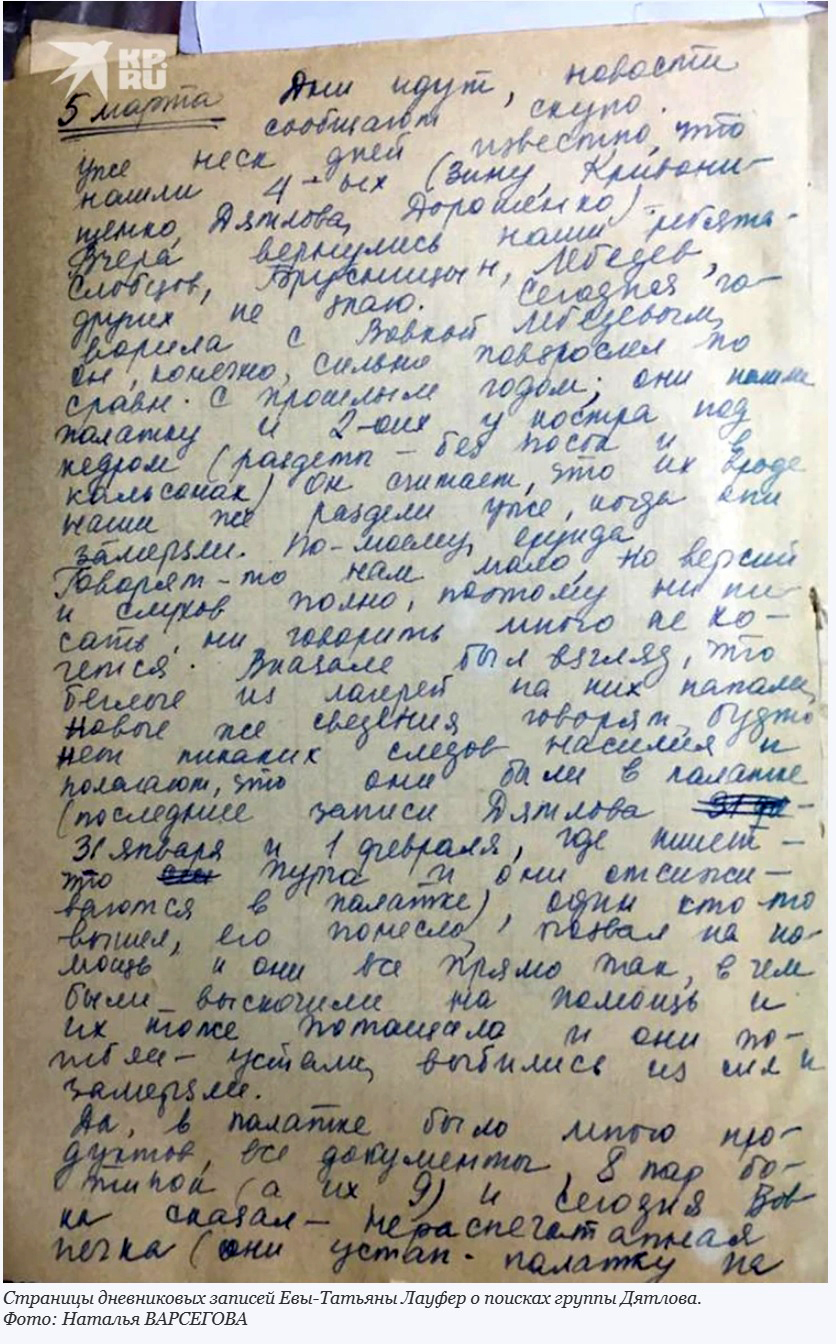 KP.RU
5 марта Дни идут, новости
сообщают скупо.
уже неск дней известно, что
нашли 4-ых (Зину, Кривони-
щенко, Дятлова, Дорошенко) –
Вчера вернулись наши ребята –
Слобцов, Брусницын, Лебедев,
других не знаю. Сегодня го-
ворила с Вовкой Лебедевым,
он, конечно, сильно повзрослел по
сравн. с прошлым годом; они нашли
палатку и 2-оих у костра под
кедром (раздеты – без носок и в
кальсонах) Он считает, что их вроде
наши же раздели уже, когда они
замерзли. По-моему, ерунда
Говорят-то нам мало, но версий
и слухов полно, поэтому ни пи-
сать, ни говорить много не хо-
чется. Вначале был взгляд, что
беглые из лагерей на них напали,
новые же сведения говорят, будто
нет никаких следов насилия и
полагают, что они были в палатке
(последние записи Дятлова
31 января и 1 февраля, где пишет –
что пурга и они отсижи-
ваются в палатке), один кто-то
вышел, его понесло, позвал на по-
мощь и они все прямо так, в чем
были – выскочили на помощь и
их тоже потащило и они по-
гибли – устали, выбились из сил и
замерзли.
Да, в палатке было много про-
дуктов, все документы, 8 пар бо-
тинок (а их 9) и сегодня Вов-
ка сказал – нераспечатанная
печка (они устан. палатку на
Страницы дневниковых записей Евы-Татьяны Лауфер о поисках группы Дятлова.
Фото: Наталья ВАРСЕГОВА